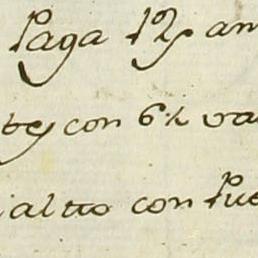 Paga 12 an
te con 6 va
alto con Pue